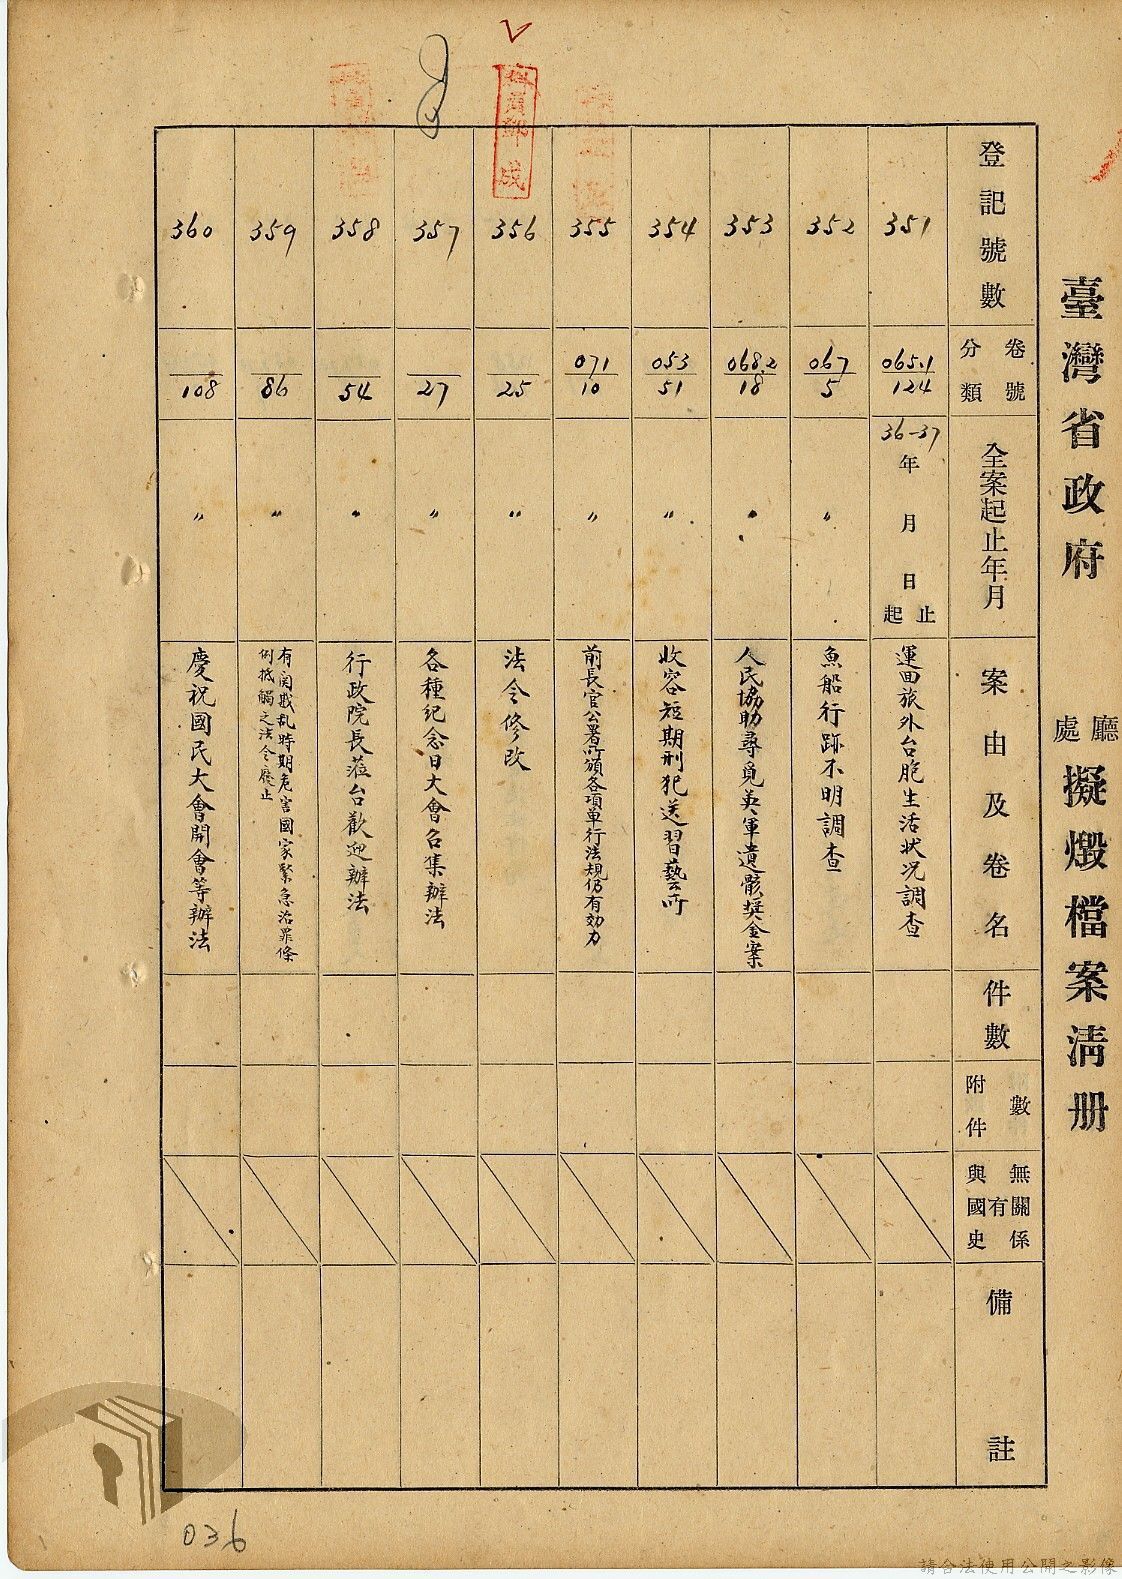 臺灣省政府
廳
處
擬燬檔案清册
登記號數
卷號
分類
全案起止年月
案由及卷名
件數
附件
數
與國史
有
無關係
備註
351
065.1
124
36-37
年
月
日
止
起
運回旅外台胞生活狀况調查
352
067
5
〃
魚船行跡不明調查
353
068.2
18
〃
人民協助尋覓英軍遺骸獎金案
354
053
51
〃
收容短期刑犯送習藝所
355
071
10
〃
前長官公署所頒各項單行法規仍有効力
356
25
〃
法令修改
357
27
〃
各種紀念日大會召集辦法
358
54
〃
行政院長蒞台歡迎辦法
359
86
〃
有関戡乱時期危害國家緊急治罪條
例抵觸之法令廢止
360
108
〃
慶祝國民大會開會等辦法
036
請合法使用公開之影像